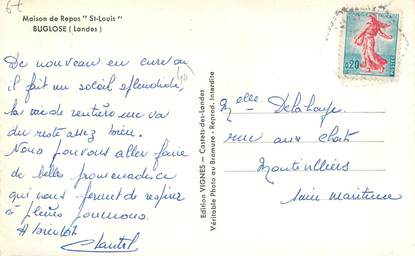 6f
Maison de Repos " St-Louis "
BUGLOSE ( Landes )
De nouveau en cure où
il fait un soleil splendide,
la vie de rentière me va
du reste assez bien.
Nous pouvons aller faire
de belles promenades ce
qui nous permet de respirer
à pleins poumons.
A bientôt
Chantal
Edition VIGNES — Castets-des-Landes
Véritable Photo au Bromure - Reprod. Interdite
0,20
POSTES
Melle Delahaye
rue aux chats
Montivilliers
Seine maritime